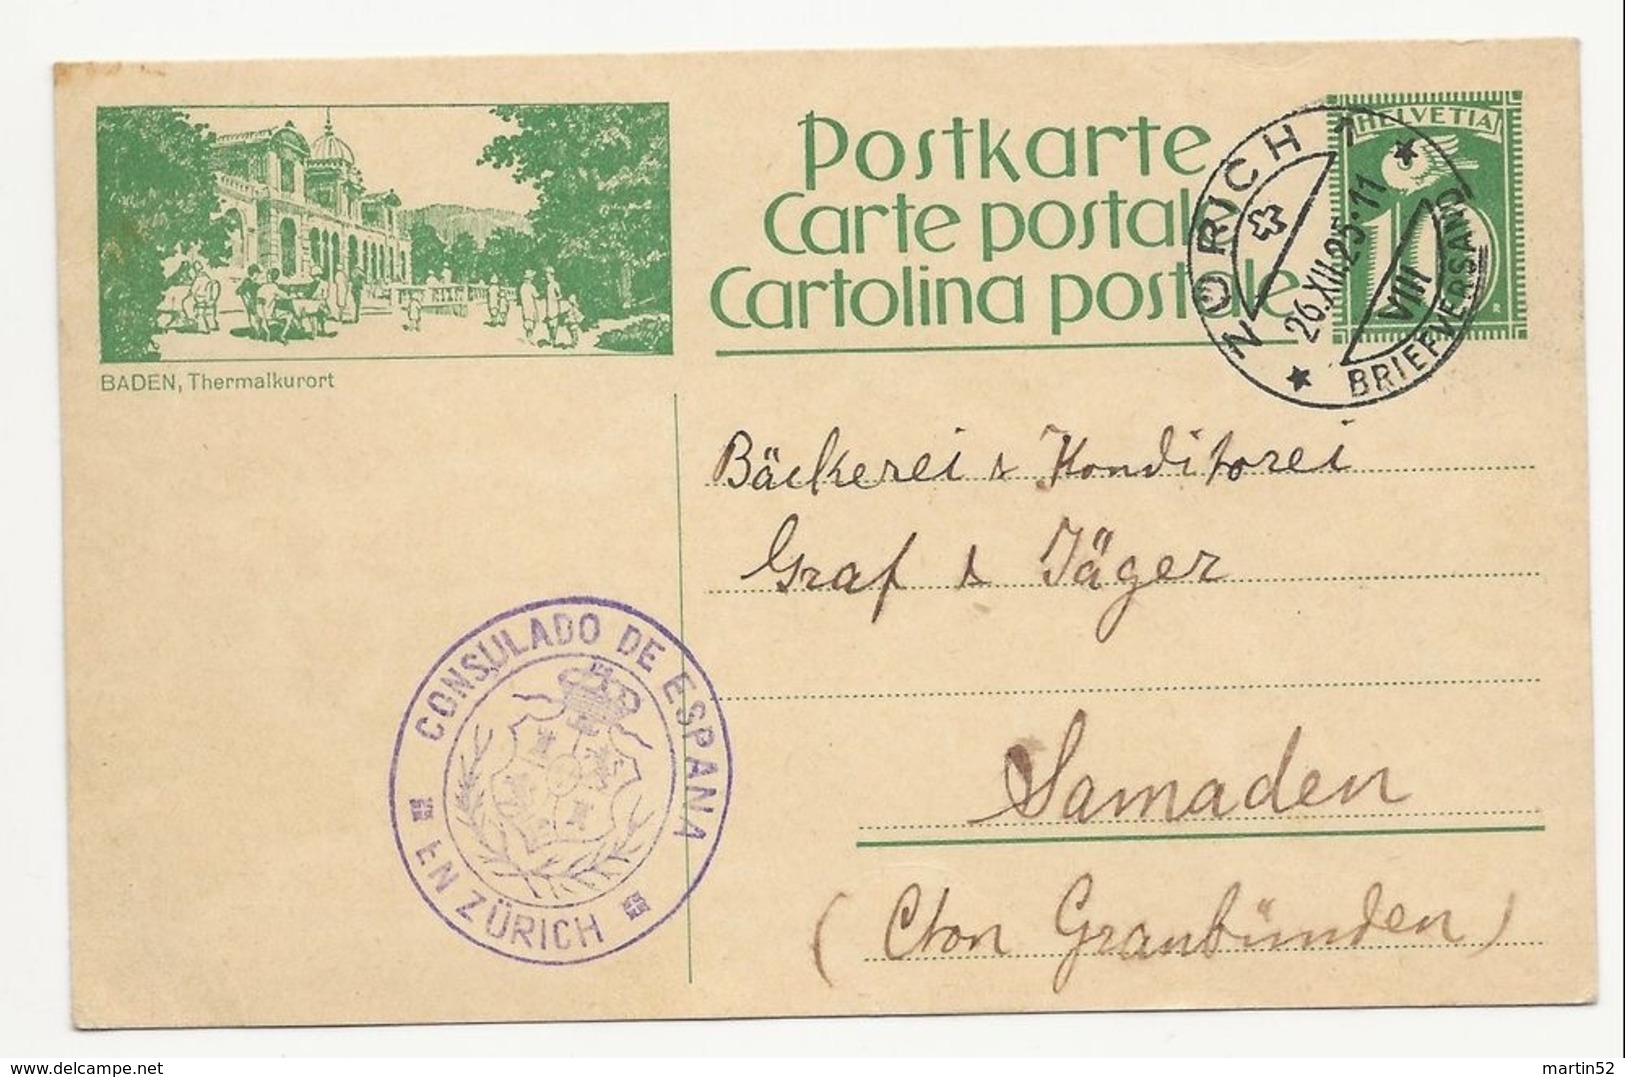 Postkarte
Carte postale
Cartolina postale
HELVETIA
10
ZÜRICH 1
26.XII.25·11
VIII
BRIEFVERSAND
BADEN, Thermalkurort
Bäckerei & Konditorei
Graf & Jäger
Samaden
(Cton Graubünden)
CONSULADO DE ESPANA
EN ZÜRICH
www.delcampe.net
martin52